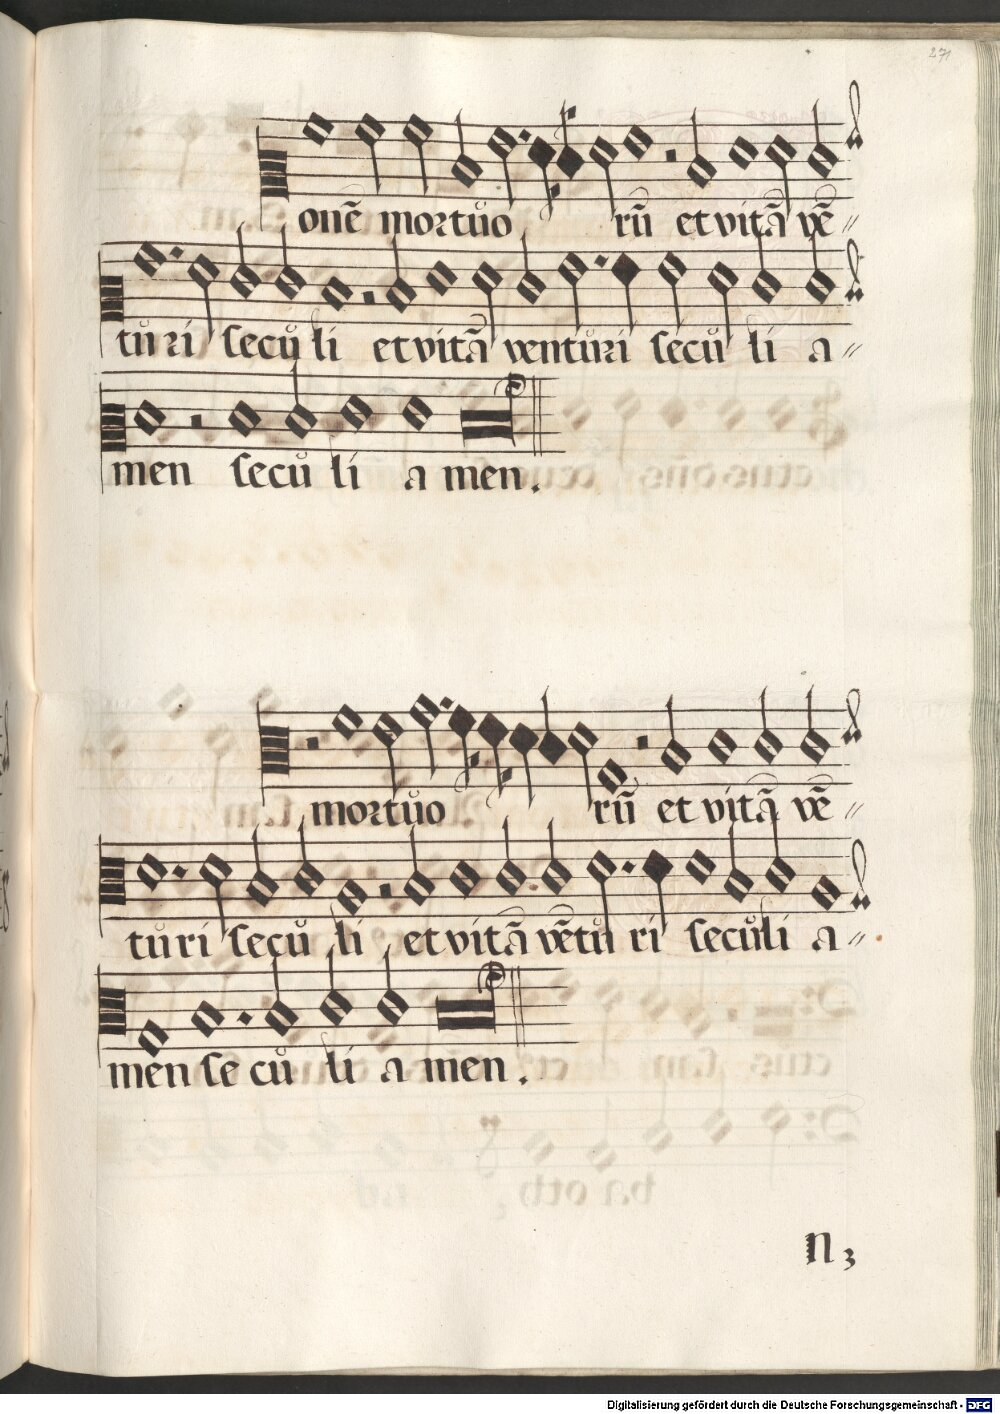 271
onē mortůo rū et vitā vē //
tů ri seců li et vitā ventůri seců li a //
men seců li a men.
mortůo rū et vitā vē //
tů ri seců li et vitā vētů ri secůli a //
men se ců li a men.
N 3
Digitalisierung gefördert durch die Deutsche Forschungsgemeinschaft - DFG